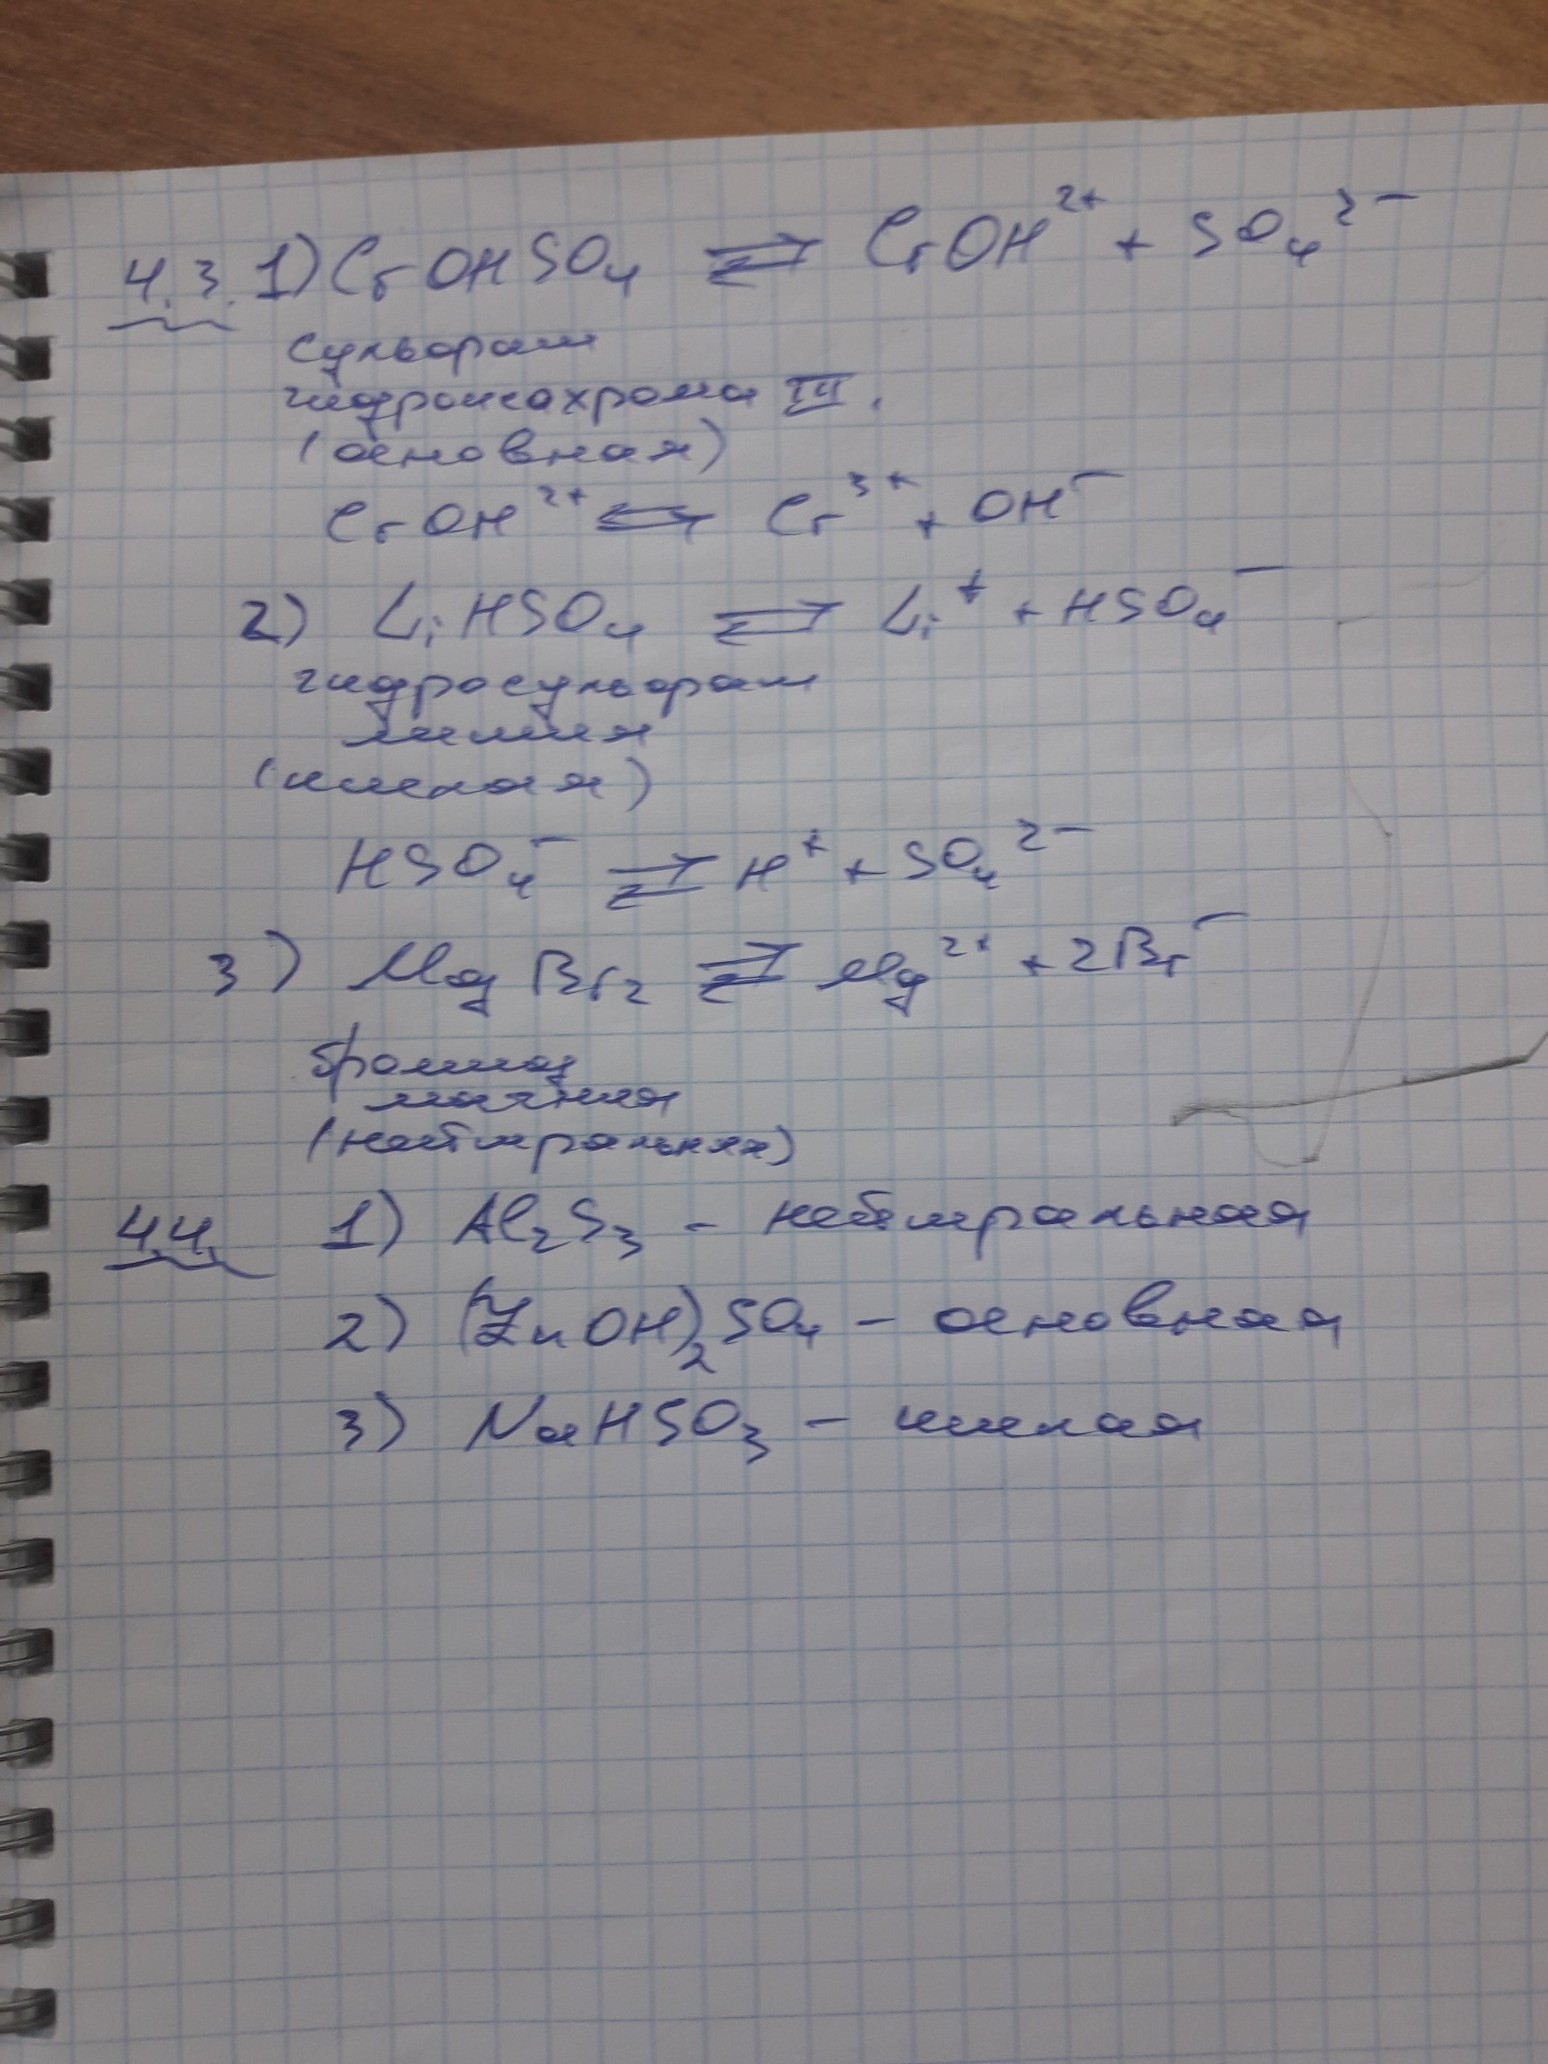 4.3. 1) CrOHSO₄ ⇄ CrOH²⁺ + SO₄²⁻
сульфат
гидроксохрома III.
(основная)
CrOH²⁺ ⇄ Cr³⁺ + OH⁻
2) LiHSO₄ ⇄ Li⁺ + HSO₄⁻
гидросульфат
лития
(кислая)
HSO₄⁻ ⇄ H⁺ + SO₄²⁻
3) MgBr₂ ⇄ Mg²⁺ + 2Br⁻
бромид
магния
(нейтральная)
4.4. 1) Al₂S₃ - нейтральная
2) (ZnOH)₂SO₄ - основная
3) NaHSO₃ - кислая